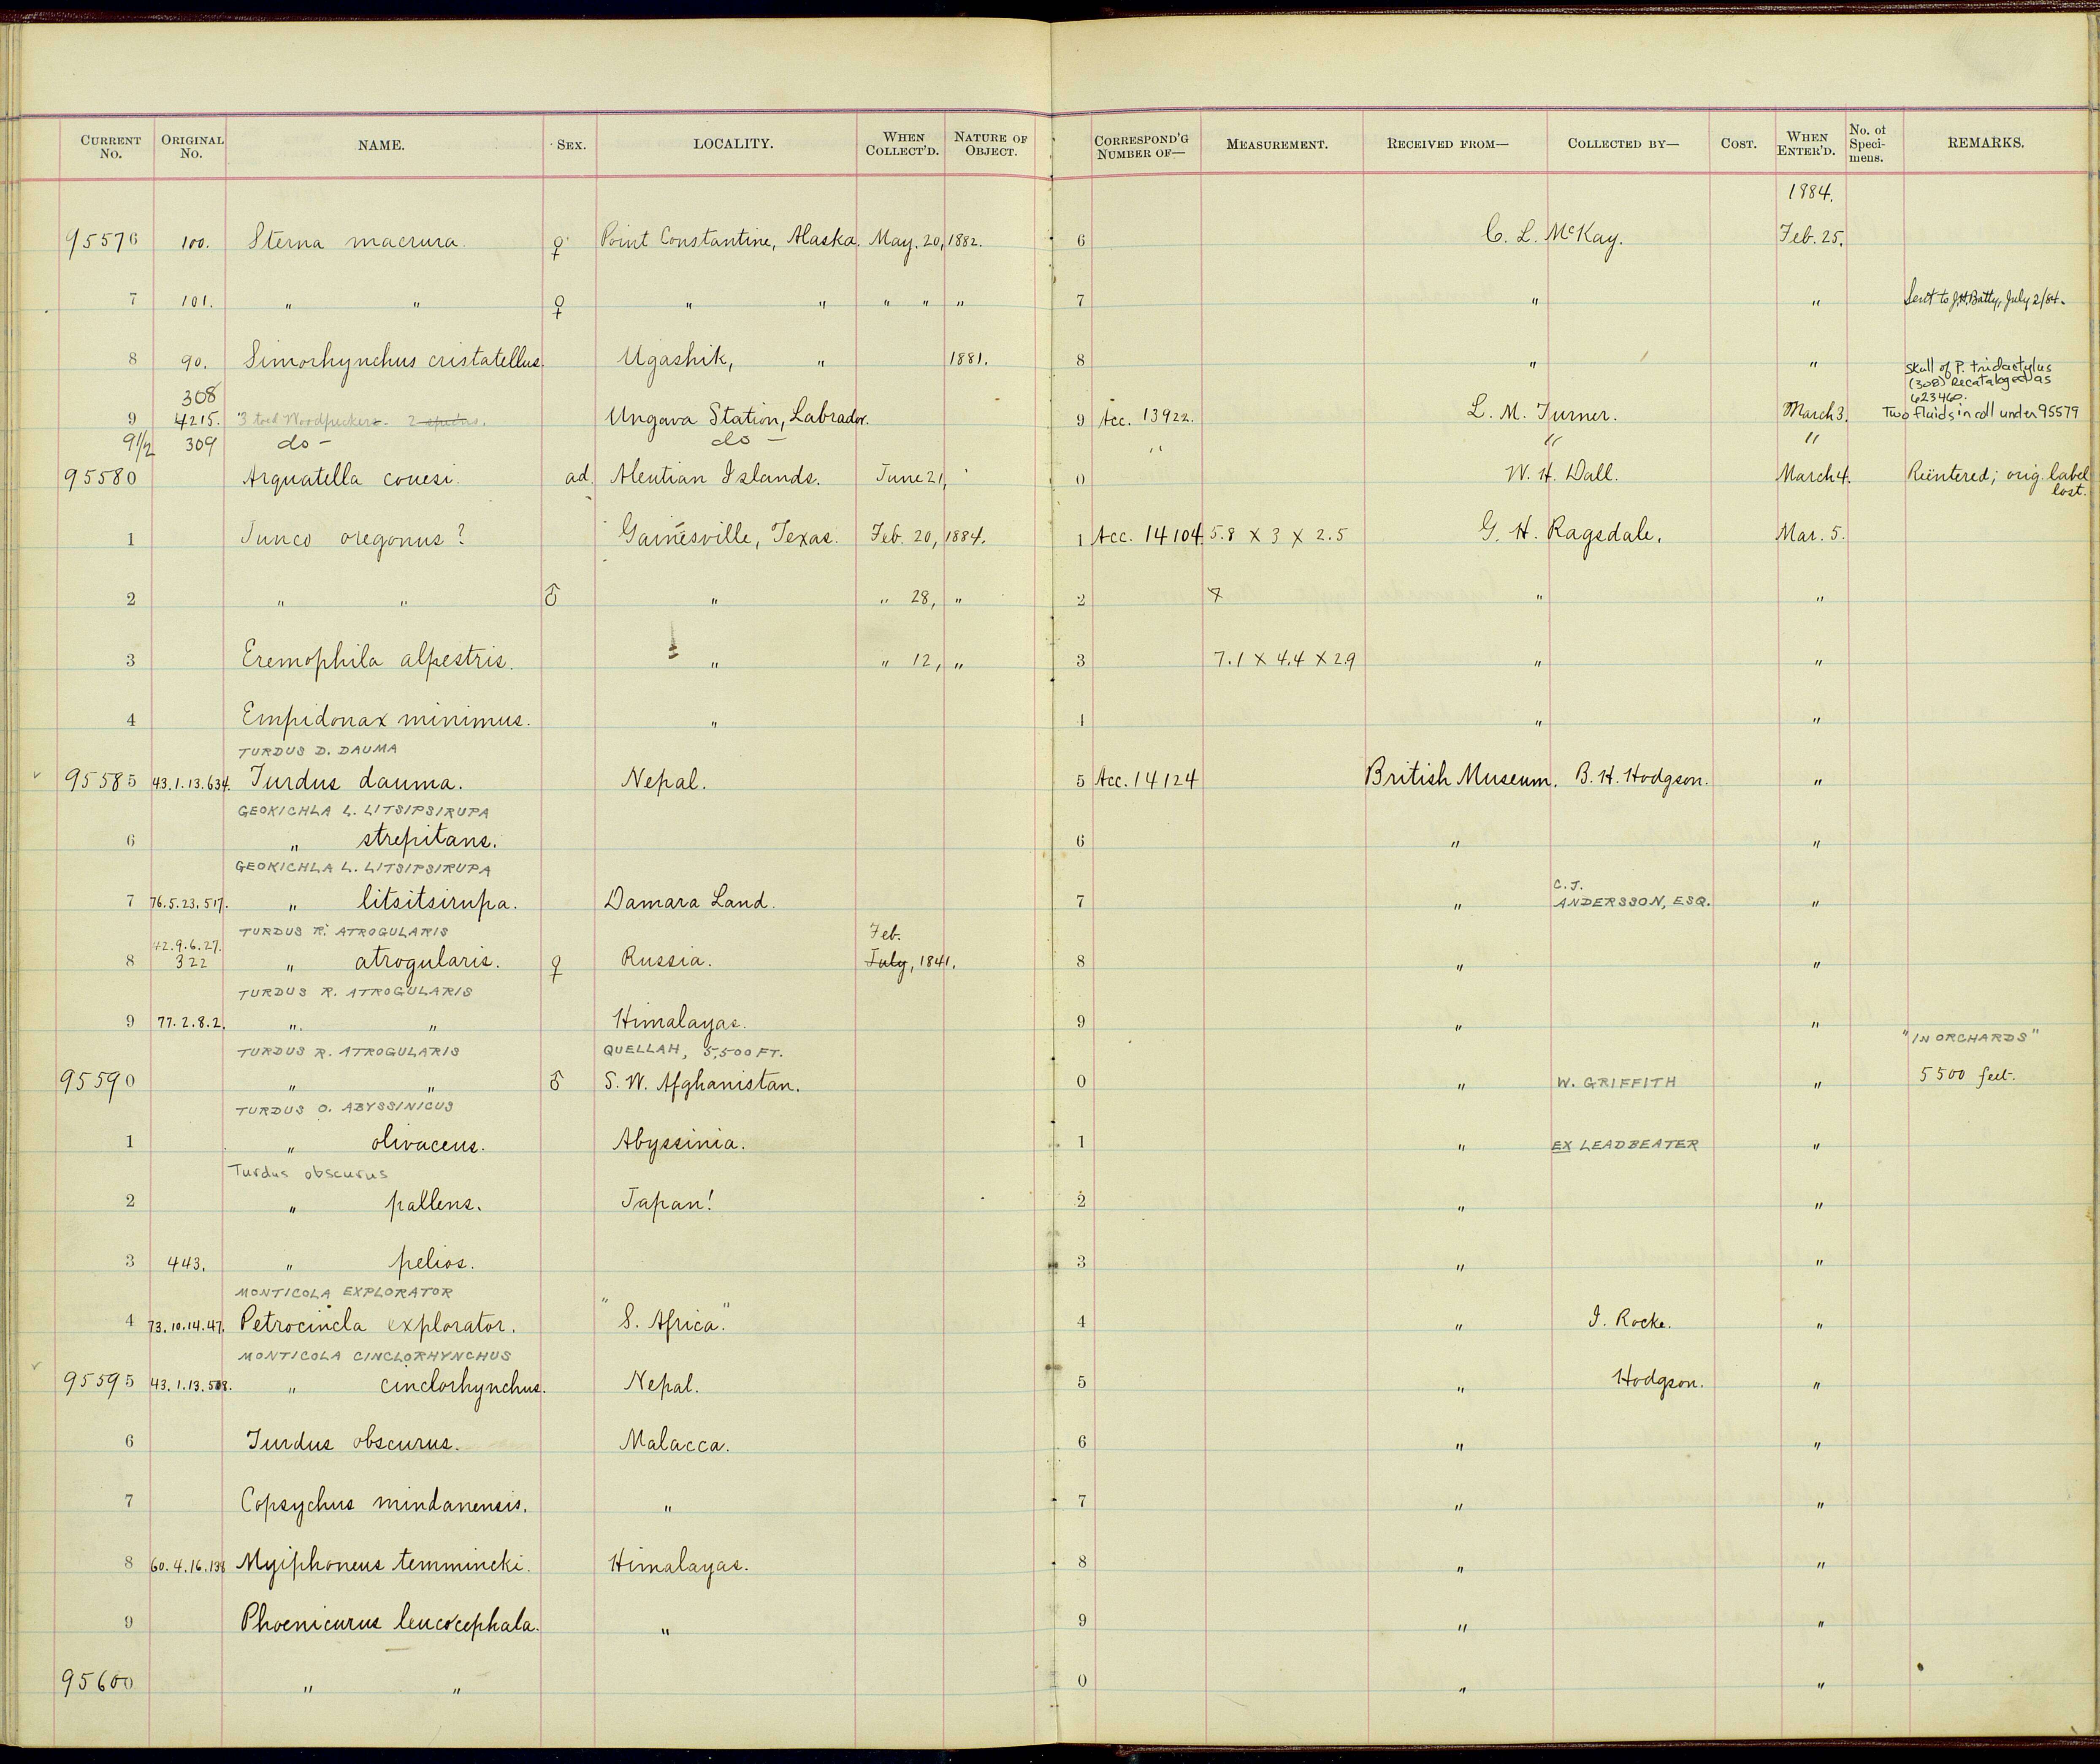 CURRENT No. ORIGINAL No. NAME. SEX. LOCALITY. WHEN COLLECT'D. NATURE OF OBJECT. CORRESPOND'G NUMBER OF— MEASUREMENT. RECEIVED FROM— COLLECTED BY— COST. WHEN ENTER'D. No. of Specimens. REMARKS.
1884.
95576 100. Sterna macrura. ♀ Point Constantine, Alaska. May. 20, 1882. 6 C. L. McKay. Feb. 25.
7 101. " " ♀ " " " " " 7 " " Sent to J.H. Batty, July 2/84.
8 90. Simorhynchus cristatellus. Ugashik, " 1881. 8 " "
Skull of P. tridactylus
308 (308) Recataloged as
623460.
9 4215. 3 toed Woodpeckers. 2 Ungava Station, Labrador. 9 Acc. 13922. L. M. Turner. March 3. Two fluids in coll under 95579
9½ 309 do – do – " " "
95580 Arquatella couesi. ad. Aleutian Islands. June 21, 0 W. H. Dall. March 4. Reëntered; orig. label
lost.
1 Junco oregonus? Gainesville, Texas. Feb. 20, 1884. 1 Acc. 14104 5.8 X 3 X 2.5 G. H. Ragsdale. Mar. 5.
2 " " ♂ " " 28, " 2 7 " "
3 Eremophila alpestris. " " 12, " 3 7.1 X 4.4 X 2.9 " "
4 Empidonax minimus. " 4 " "
TURDUS D. DAUMA
95585 43.1.13.634. Turdus dauma. Nepal. 5 Acc. 14124 British Museum. B. H. Hodgson. "
GEOKICHLA L. LITSIPSIRUPA
6 " strepitans. 6 " "
GEOKICHLA L. LITSIPSIRUPA
C. J.
7 76.5.23.517. " litsitsirupa. Damara Land. 7 " ANDERSSON, ESQ. "
TURDUS R. ATROGULARIS Feb.
42.9.6.27.
8 322 " atrogularis. ♀ Russia. July, 1841. 8 " "
TURDUS R. ATROGULARIS
9 77.2.8.2. " " Himalayas. 9 " "
TURDUS R. ATROGULARIS QUELLAH, 5,500 FT. "IN ORCHARDS"
95590 " " ♂ S. W. Afghanistan. 0 " W. GRIFFITH " 5500 feet.
TURDUS O. ABYSSINICUS
1 " olivaceus. Abyssinia. 1 " EX LEADBEATER "
Turdus obscurus
2 " pallens. Japan! 2 " "
3 443. " pelios. 3 " "
MONTICOLA EXPLORATOR
4 73.10.14.47. Petrocincla explorator. "S. Africa." 4 " I. Rocke. "
MONTICOLA CINCLORHYNCHUS
95595 43.1.13.508. " cinclorhynchus. Nepal. 5 " Hodgson. "
6 Turdus obscurus. Malacca. 6 " "
7 Copsychus mindanensis. " 7 " "
8 60.4.16.138 Myiphoneus temmincki. Himalayas. 8 " "
9 Phoenicurus leucocephala. " 9 " "
95600 " " 0 " "